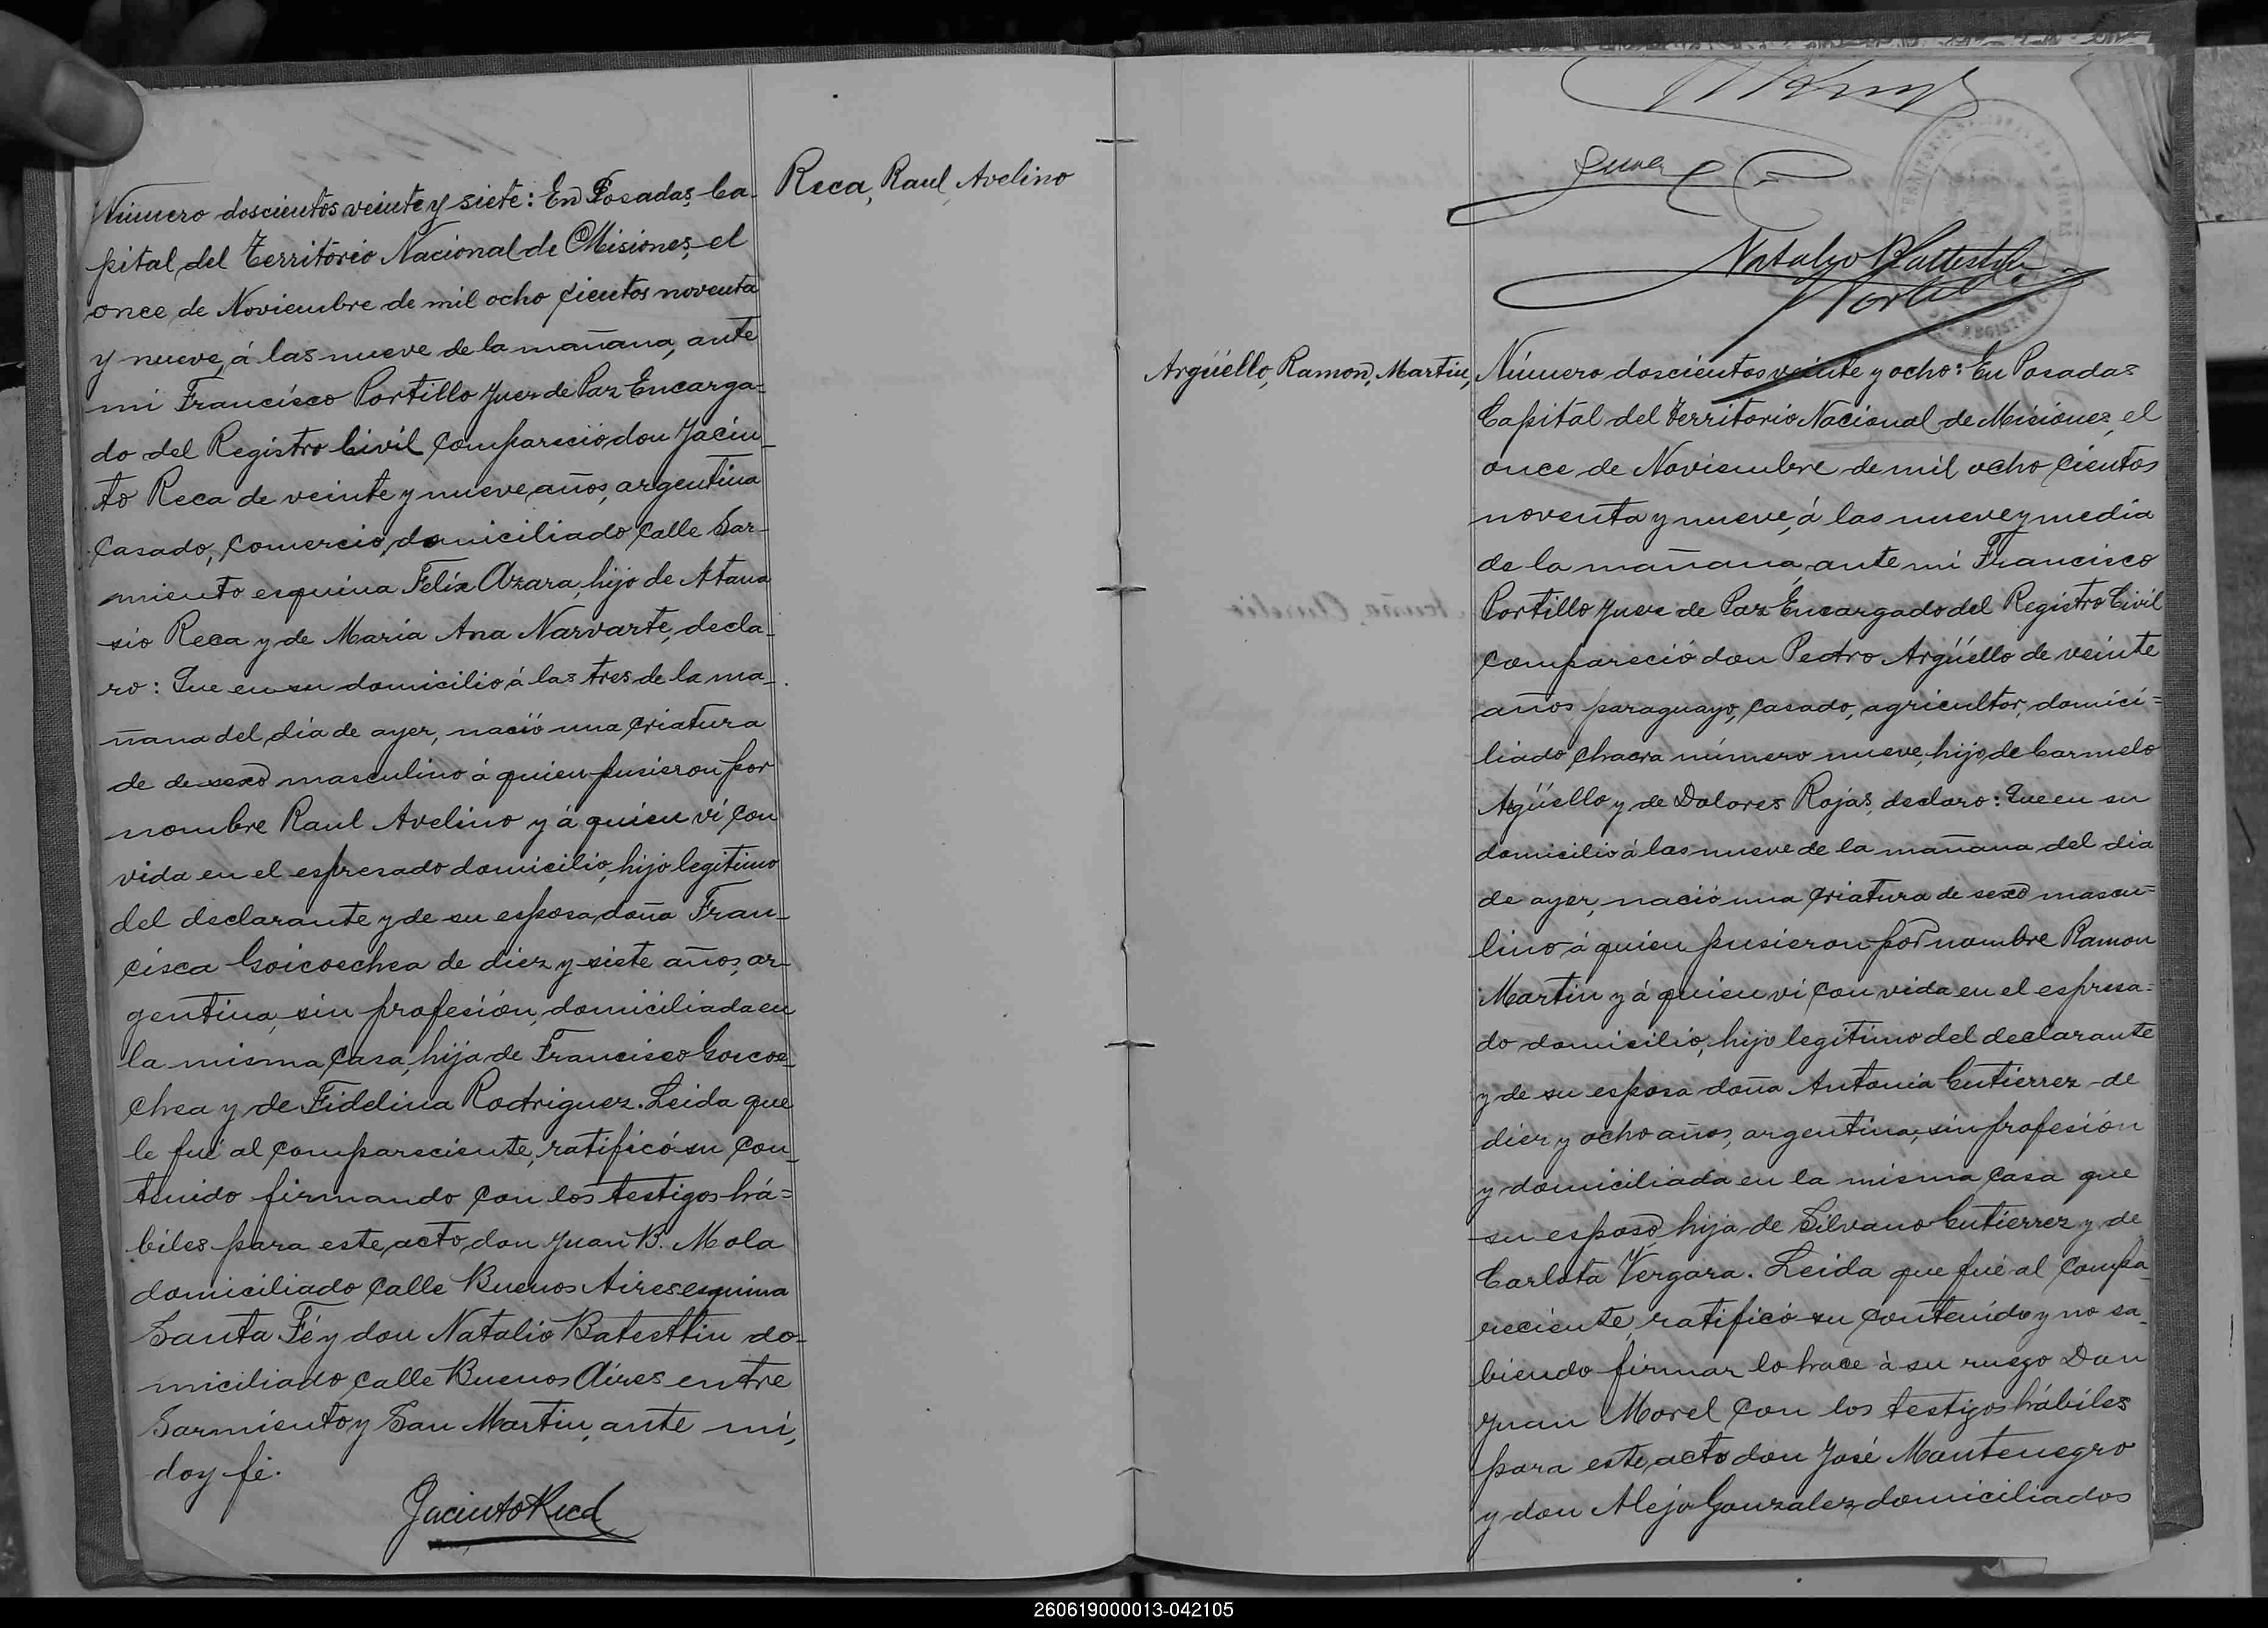 Reca, Raul Avelino
Número doscientos veinte y siete: En Posadas, Ca-
pital del Territorio Nacional de Misiones, el
once de Noviembre de mil ocho cientos noventa
y nueve, á las nueve de la mañana, ante
mi Francisco Portillo Juez de Paz Encarga-
do del Registro Civil compareció don Jacin-
to Reca de veinte y nueve años, argentina
casado, comercio, domiciliado calle Sar-
miento esquina Felix Azara, hijo de Atana
sio Reca y de María Ana Narvarte, decla-
ro: Que en su domicilio á las tres de la ma-
ñana del dia de ayer, nació una criatura
de de sexo masculino á quien pusieron por
nombre Raul Avelino y á quien vi con
vida en el espresado domicilio, hijo legitimo
del declarante y de su esposa doña Fran-
cisca Goicoechea de diez y siete años, ar-
gentina, sin profesión, domiciliada en
la misma casa, hija de Francisco Goicoe-
chea y de Fidelina Rodriguez. Leida que
le fué al compareciente, ratificó su con-
tenido firmando con los testigos há=
biles para este acto, don Juan B. Mola
domiciliado calle Buenos Aires esquina
Santa Fé y don Natalio Batesttin do-
miciliado calle Buenos Aires entre
Sarmiento y San Martin, ante mi,
doy fé.
Jacinto Reca
Natalio Battesttin
Portillo
Argüello, Ramon, Martin,
Número doscientos veinte y ocho: En Posadas
Capital del Territorio Nacional de Misiones, el
once de Noviembre de mil ocho cientos
noventa y nueve, á las nueve y media
de la mañana, ante mi Francisco
Portillo Juez de Paz Encargado del Registro Civil
compareció don Pedro Argüello de veinte
años paraguayo, casado, agricultor, domici=
liado chacra número nueve, hijo de Carmelo
Argüello y de Dolores Rojas, declaro: Que en su
domicilio á las nueve de la mañana del dia
de ayer, nació una criatura de sexo mascu=
lino á quien pusieron por nombre Ramon
Martin y á quien vi con vida en el espresa=
do domicilio, hijo legitimo del declarante
y de su esposa doña Antonia Gutierrez de
diez y ocho años, argentina, sin profesión
y domiciliada en la misma casa que
su esposo, hija de Silvano Gutierrez y de
Carlota Vergara. Leida que fué al compa-
reciente, ratificó su contenido y no sa-
biendo firmar lo hace à su ruego Don
Juan Morel con los testigos hábiles
para este acto don José Montenegro
y don Alejo Gonzalez, domiciliados
260619000013-042105